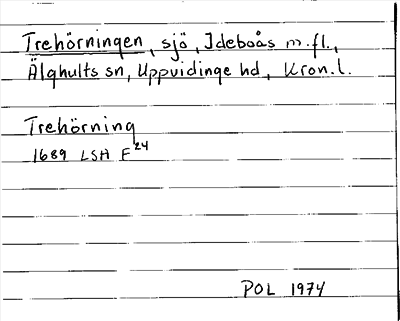 Trehörningen, sjö, Ideboås m.fl.,
Älghults sn, Uppvidinge hd, Kron.l.
Trehörning
1689 LSH F24
POL 1974